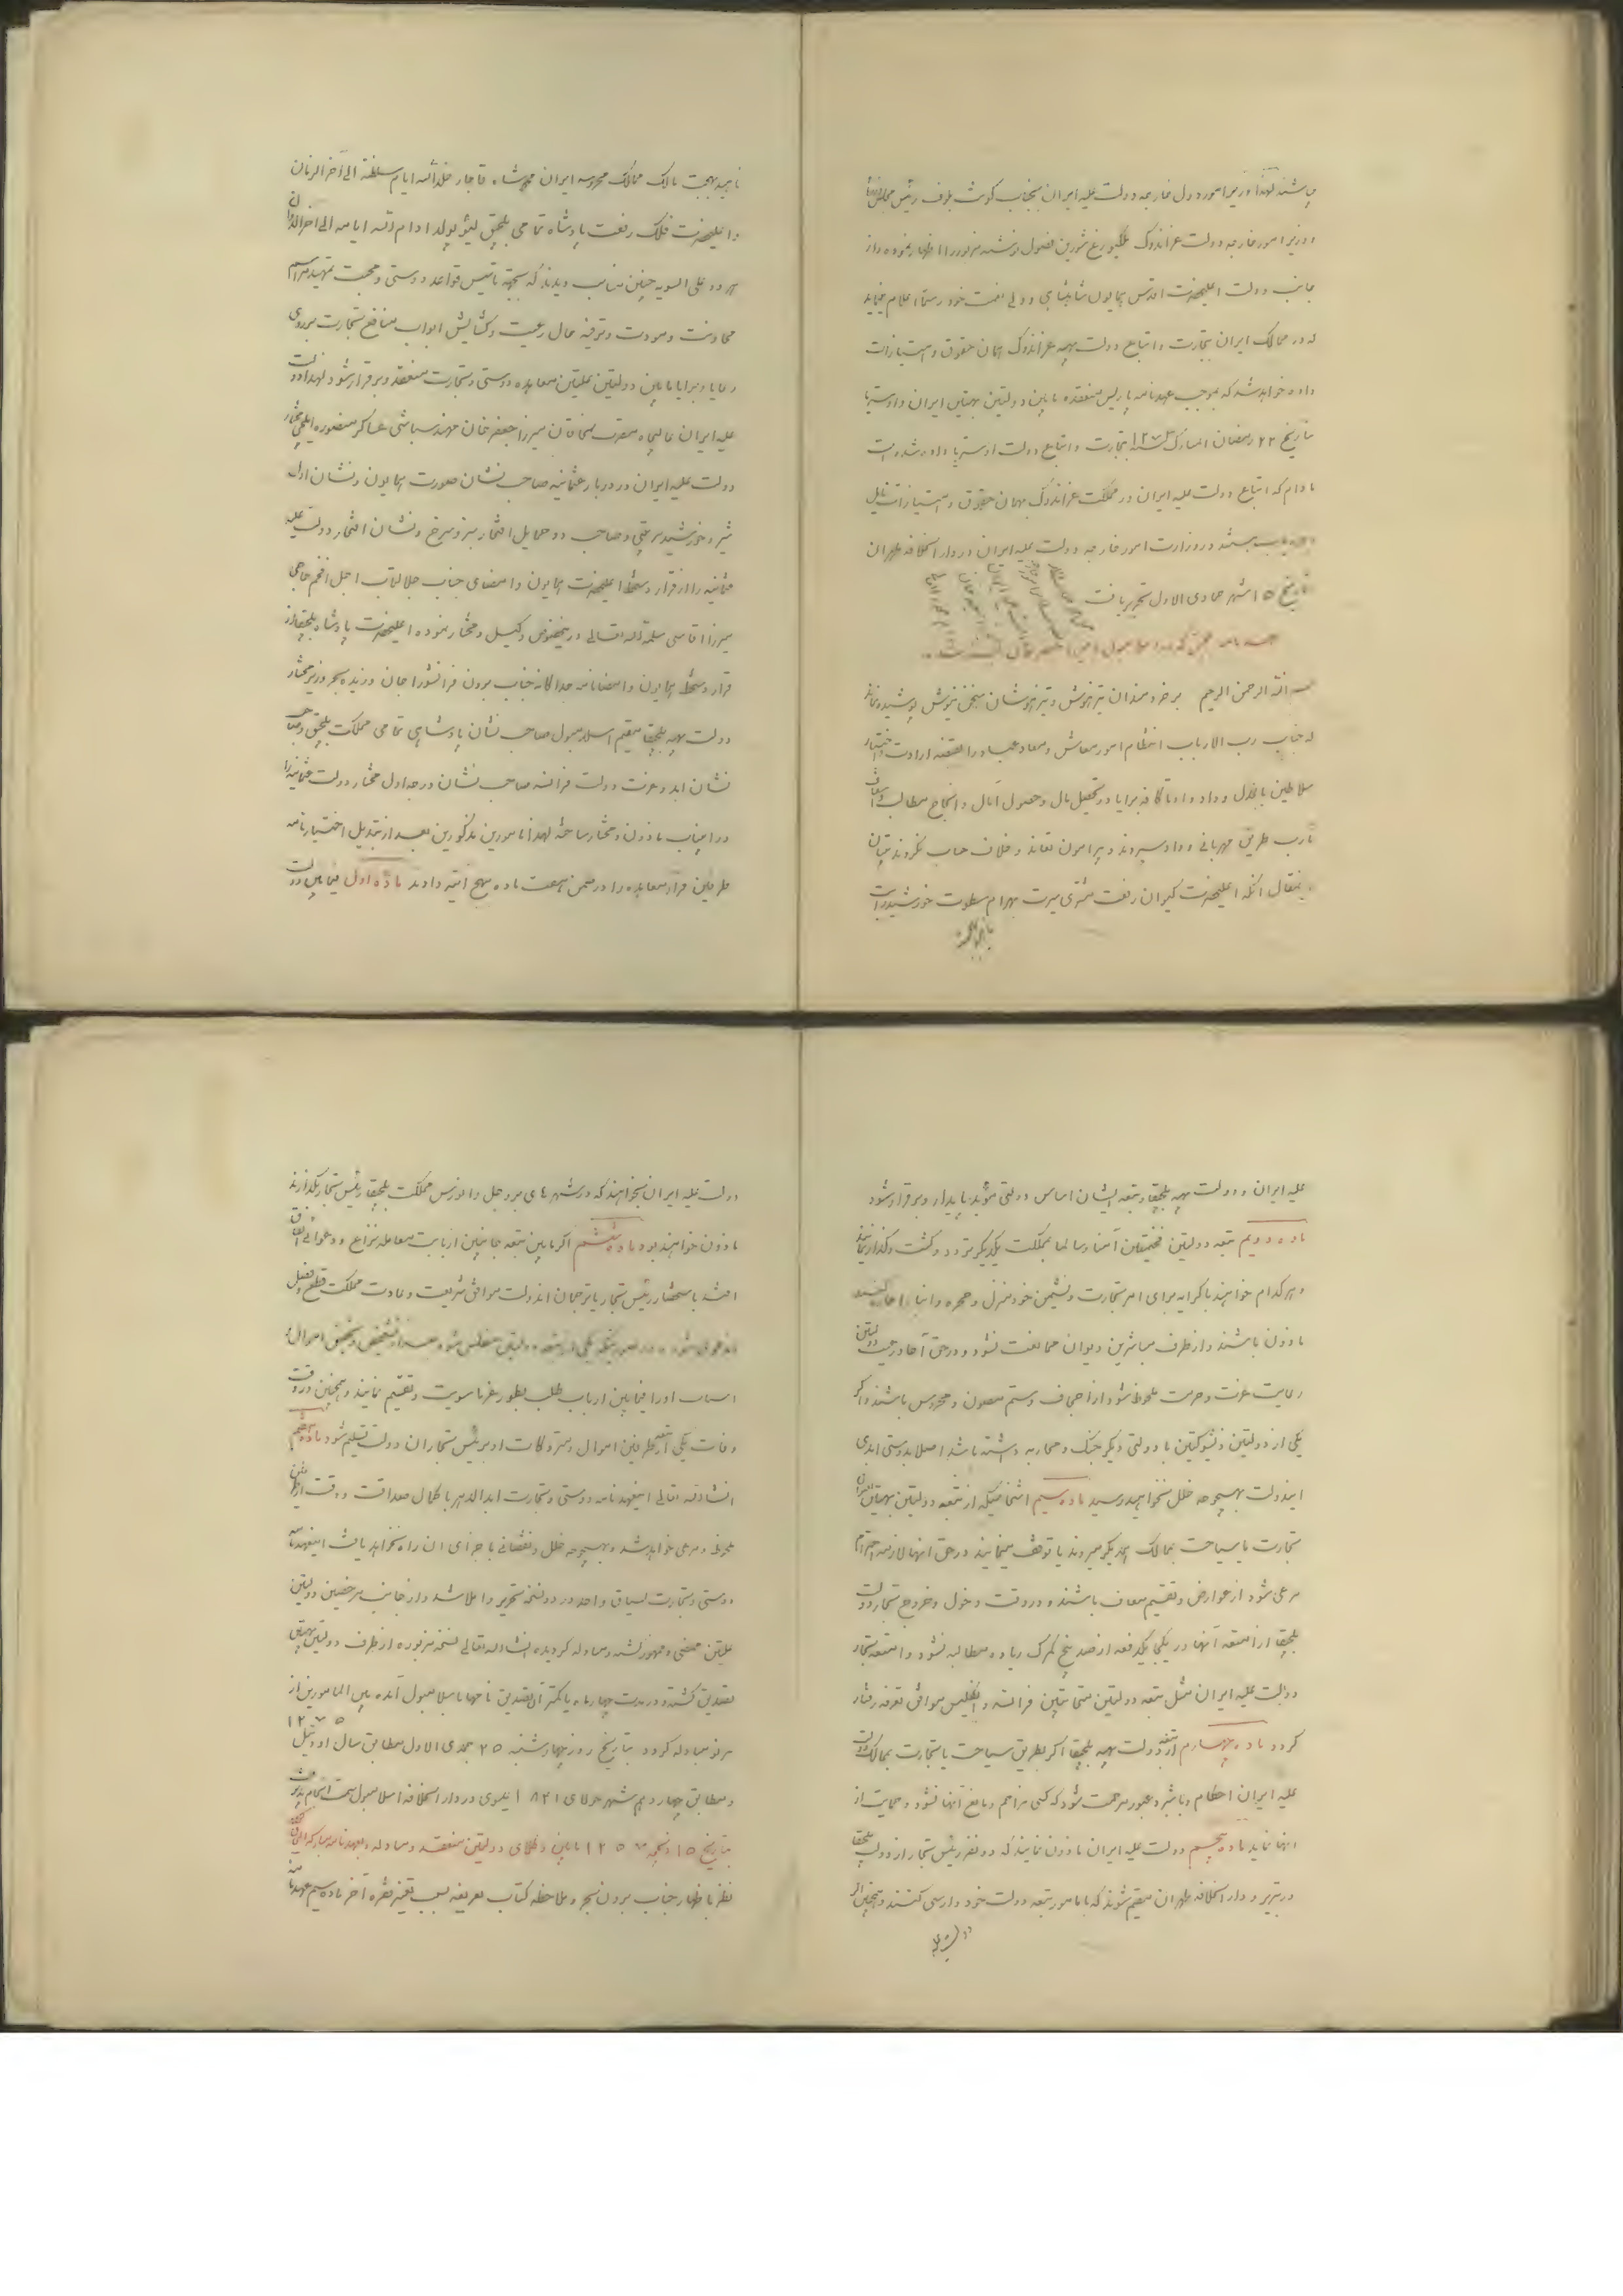 می‌باشند لهذا وزیر امور دول خارجه دولت علیه ایران بجناب کونت بلوف رئیس مجلس
و وزیر امور خارجه دولت غراندوک مکلنبورغ شورین فصول نوشته مزبور را اظهار نموده و از
جانب دولت اعلیحضرت اقدس همایون شاهنشاهی ولی نعمت خود رسماً اعلام مینماید
که در ممالک ایران بتجارت و اتباع دولت بهیه غراندوک همان حقوق و امتیازات
داده خواهد شد که بموجب عهدنامه پاریس منعقده مابین دولتین بهیتین ایران و اوستریا
بتاریخ ۲۲ رمضان المبارک سنه ۱۲۷۳ بتجارت و اتباع دولت اوستریا داده شده است
مادام که اتباع دولت علیه ایران در مملکت غراندوک بهمان حقوق و امتیازات نایل
بهره‌یاب هستند در وزارت امور خارجه دولت علیه ایران در دار الخلافه طهران
بتاریخ ۱۵ شهر جمادی الاول تحریر یافت
بسم الله الرحمن الرحیم بر خردمندان تیزهوش و تیزهوشان سخن نیوش پوشیده نماند
که جناب رب الارباب انتظام امور معاش و معاد عباد را بقبضه ارادت و اختیار
سلاطین با عدل و داد داد تا کافه برایا در تحصیل مال و حصول آمال و انجاح مطالب و اسعاف
مآرب طریق مهربانی و وداد سپرند و پیرامون نفاق و خلاف حساب نکردند بنیان
اینمقال آنکه اعلیحضرت کیوان رفعت مشتری سیرت بهرام سطوت خورشید رایت
ناهید بهجت
ناهید بهجت مالک ممالک محروسه ایران محمد شاه قاجار خلد الله ایام سلطنته الی آخر الزمان
و اعلیحضرت فلک رفعت پادشاه تمامی بلجیق لیئوپولد ادام الله ایامه الی اخر الدوران
هر دو علی السویه چنین مناسب دیدند که بجهة تأسیس قواعد دوستی و محبت و تمهید مراسم
محادنت و مودت و ترفیه حال رعیت و گشایش ابواب منافع تجارت بر روی
رعایا و برایا مابین دولتین علیتین معاهده دوستی و تجارت منعقد و برقرار شود لهذا دولت
علیه ایران عالیجاه مقرب الخاقان میرزا جعفر خان مهندسباشی عساکر منصوره ایلچی مختار
دولت علیه ایران در دربار عثمانیه صاحب نشان صورت همایون و نشان اول
شیر و خورشید مرتبتی و صاحب دو حمایل افتخار سبز و سرخ و نشان افتخار دولت علیه
عثمانیه را از قرار دستخط اعلیحضرت همایون و امضای جناب جلالتمآب اجل افخم حاجی
میرزا آقاسی سلمه الله تعالی در اینخصوص وکیل و مختار نموده اعلیحضرت پادشاه بلجیقا از
قرار دستخط همایون و امضانامه جداگانه جناب برون فرانسوا جان وزیده بهر وزیر مختار
دولت بهیه بلجیقا مقیم اسلامبول صاحب نشان پادشاهی تمامی مملکت بلجیق و صاحب
نشان ابد و عزت دولت فرانسه صاحب نشان درجه اول افتخار دولت عثمانیه را
در اینباب ماذون و مختار ساخته لهذا مامورین مذکورین بعد از تبدیل اختیارنامه
طرفین قرار معاهده را در ضمن هفت ماده بهیج انتها دادند ماده اول فیمابین دولت
علیه ایران و دولت بهیه بلجیقا و تبعه ایشان اساس دولتی مؤبد پایدار و برقرار شود
ماده دویم تبعه دولتین فخیمتین آمناً و سالماً بمملکت یکدیگر تردد و گشت و گذار نمایند
و هر کدام خواهند باکرایه برای امر تجارت و نشیمن خود منزل و حجره و انبار اجاره کنند
ماذون باشند و از طرف مباشرین دیوان ممانعت نشود و در حق آحاد رعیت دولتین
رعایت عزت و حرمت ملحوظ شود از اجحاف و ستم مصون و محروس باشند و اگر
یکی از دولتین ذیشوکتین با دولتی دیگر جنگ و محاربه داشته باشد اصلا بدوستی ابدی
ایندولت بهیچوجه خلل نخواهد رسید ماده سیم اشخاصیکه از تبعه دولتین بهیتین بعنوان
تجارت یا سیاحت بممالک یکدیگر میروند یا توقف مینمایند در حق آنها لازمه احترام
مرعی شود از عوارض و تقسیم معاف باشند و در وقت دخول و خروج تجار دولت
بلجیقا از امتعه آنها در یکجا یکدفعه از صد پنج گمرک زیاده مطالبه نشود و امتعه تجار
دولت علیه ایران مثل تبعه دولتین متحابتین فرانسه و انگلیس موافق تعرفه رفتار
گردد ماده چهارم از تبعه دولت بهیه بلجیقا اگر بطریق سیاحت یا تجارت بممالک دولت
علیه ایران احکام و تأشیر عبور مرحمت شود که کسی مزاحم و مانع آنها نشود و حمایت از
آنها نماید ماده پنجم دولت علیه ایران ماذون نمایند که دو نفر رئیس تجار از دولت بلجیقا
در تبریز و دار الخلافه طهران مقیم شوند که با مامور تبعه دولت خود وارسی کنند و همچنین اگر
دولت علیه
دولت علیه ایران بخواهند که در شهرهای بروجل و انورس مملکت بلجیقا رئیس تجار بگذارند
ماذون خواهند بود ماده ششم اگر مابین تبعه جانبین از بابت معامله نزاع و دعوائی اتفاق
افتد باستحضار رئیس تجار یا ترجمان آندولت موافق شریعت و عادت مملکت قطع و فصل
آندعوی شود و در صورتیکه یکی از تبعه دولتین مفلس شود بعد از تشخیص و تحقیق اموال و
اسباب او را فیمابین ارباب طلب بطور غرما سویت و تقسیم نمایند و همچنین در وقت
وفات یکی از تبعه طرفین اموال و متروکات او برئیس تجاران دولت تسلیم شود ماده هفتم
انشاءالله تعالی اینعهدنامه دوستی و تجارت ابدالدهر با کمال صداقت و دقت از طرفین
ملحوظ و مرعی خواهد شد و بهیچوجه خلل و نقصانی باجرای آن راه نخواهد یافت اینعهدنامه
دوستی و تجارت بسیاق واحد در دو نسخه تحریر و املا شد و از جانب مرخصین دولتین
علیتین ممضی و ممهور گشته و مبادله گردیده انشاالله تعالی نسخه مزبوره از طرف دولتین بهیتین
تصدیق گشته و در مدت چهار ماه یا کمتر آن تصدیق نامه‌ها باسلامبول آمده بین المامورین از
نو مبادله گردد بتاریخ روز چهارشنبه ۲۵ جمادی الاول ۱۲۵۷ مطابق سال اودئیل
و مطابق چهاردهم شهر جولای ۱۸۴۱ عیسوی در دار الخلافه اسلامبول سمت اتمام پذیرفت
بتاریخ ۱۵ ذیحجه ۱۲۵۷ مابین وکلای دولتین منعقد و مبادله
نظر باظهار جناب برون بهر و ملاحظه کتاب تعریفه بسبب تغییر فقره آخر ماده سیم عهدنامه